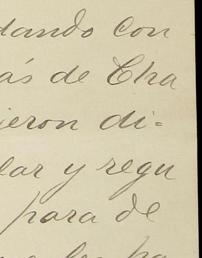 dando con
ás de Cha
jeron di-
lar y regu
para de